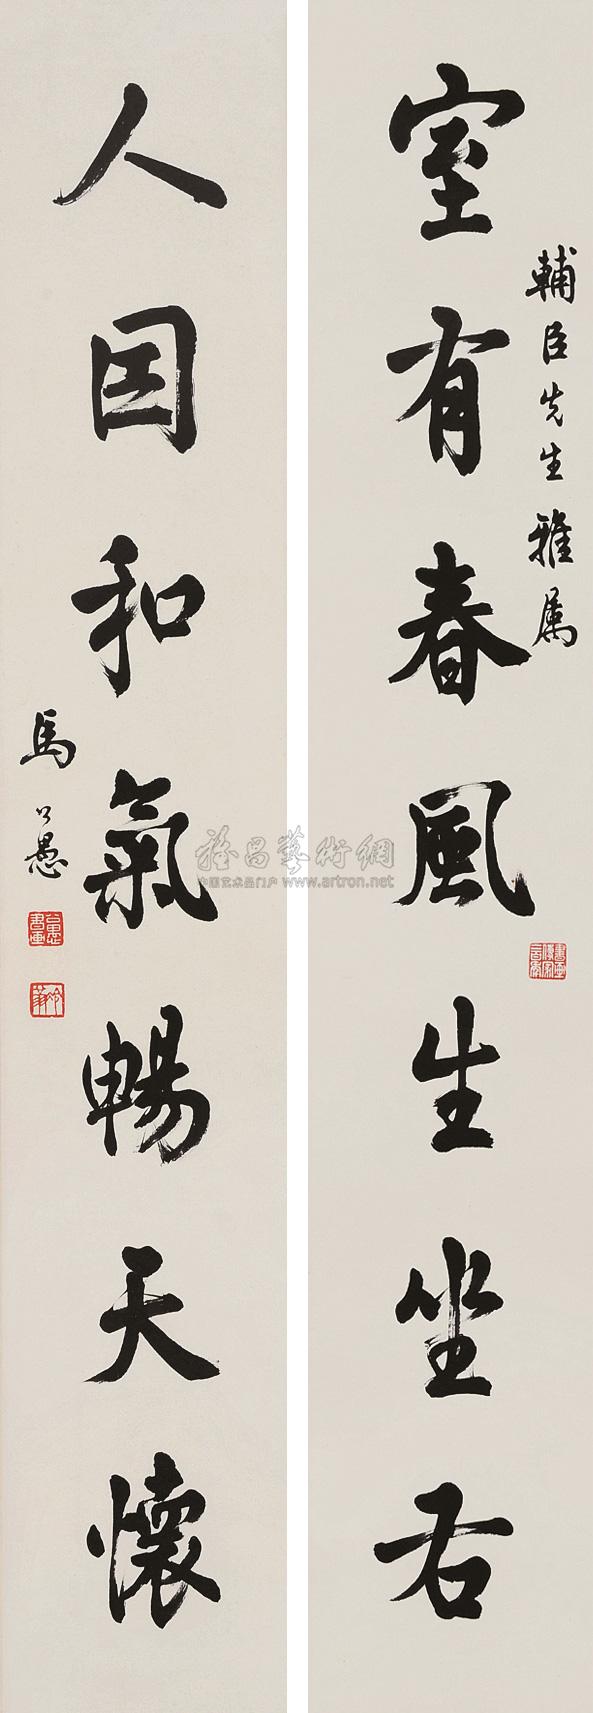 輔臣先生雅属
室有春風生坐右
人因和氣暢天懷
馬公愚
公愚書畫
冷翁
雅昌藝術網
中国艺术品门户 www.artron.net